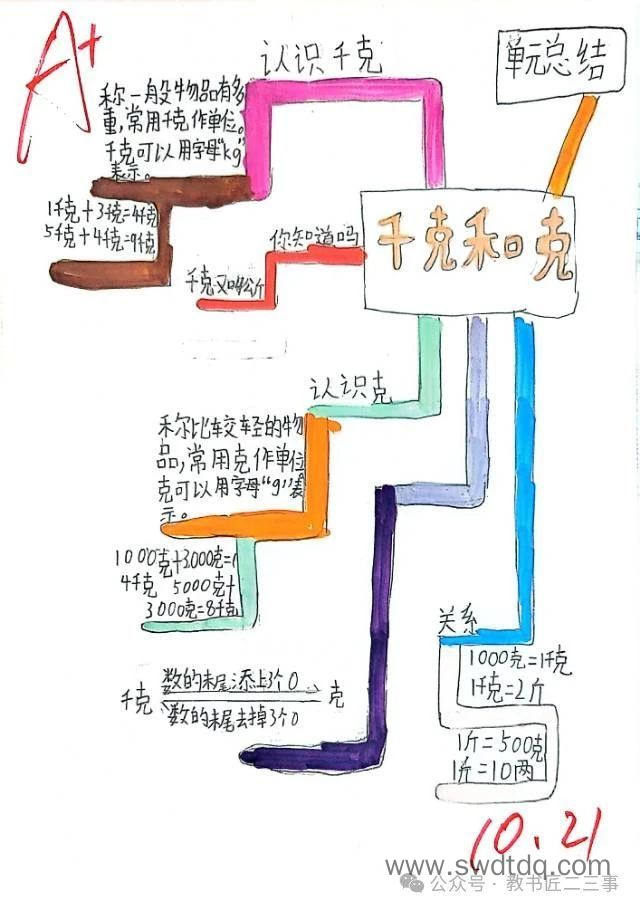 A+
单元总结
千克和克
认识千克
称一般物品有多
重,常用千克作单位。
千克可以用字母"kg"
表示。
1千克+3千克=4千克
5千克+4千克=9千克
你知道吗
千克又叫公斤
认识克
称比较轻的物
品,常用克作单位
克可以用字母"g"表
示。
1000克+3000克=
4千克 5000克+
3000克=8千克
千克 数的末尾添上3个0 克
数的末尾去掉3个0
关系
1000克=1千克
1千克=2斤
1斤=500克
1斤=10两
10.21
www.swdtdq.com
公众号·教书匠二三事